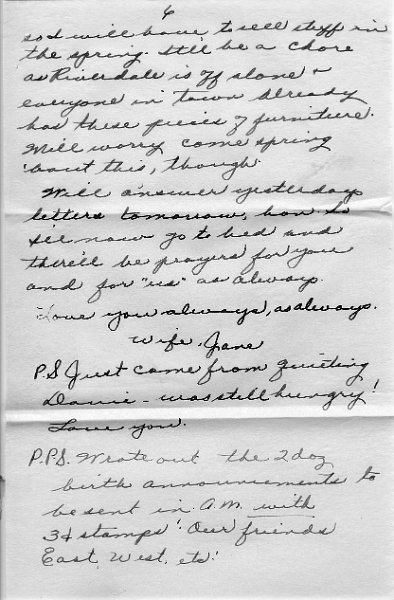 6
so I will have to sell stuff in
the spring. It'll be a chore
as Riverdale is off alone +
everyone in town already
has these pieces of furniture.
Will worry come spring
'bout this, though.
Will answer yesterday's
letters tomorrow, hon. So
I'll now go to bed and
there'll be prayers for you
and for "us" as always.
Love you always, as always.
Wife, Jane
P.S Just came from quieting
Davie - was still hungry!
Love you.
P.P.S. Wrote out the 2 doz
birth announcements to
be sent in A.M. with
3¢ stamps! Our friends
East, West, etc!